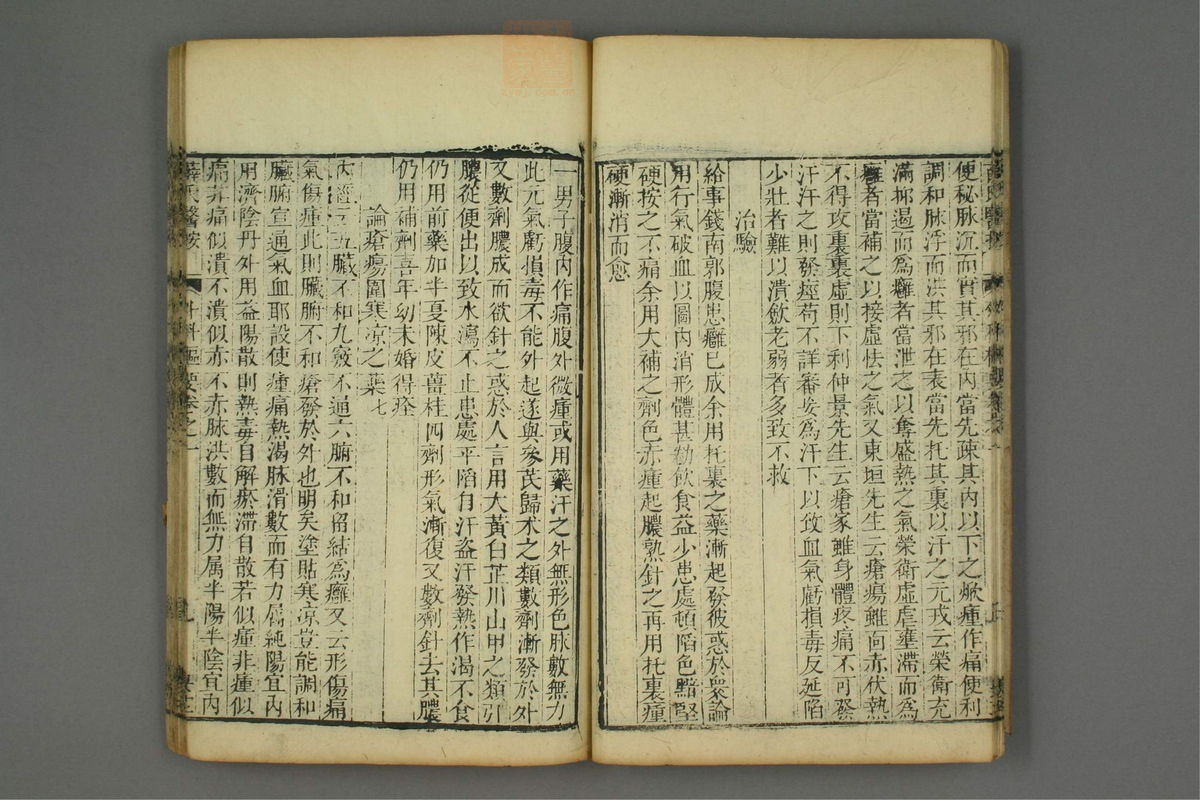 便秘脉沉而實其邪在內當先疎其內以下之焮瘇作痛便利
調和脉浮而洪其邪在表當先托其裏以汗之元戎云榮衛充
滿抑遏而為癰者當泄之以奪盛熱之氣榮衛虛虐壅滯而為
癰者當補之以接虛怯之氣又東垣先生云瘡瘍雖面赤伏熱
不得攻裏裏虛則下利仲景先生云瘡家雖身體疼痛不可發
汗汗之則發痙苟不詳審妄為汗下以致血氣虧損毒反延陷
少壯者難以潰斂老弱者多致不救
治驗
給事錢南郭腹患癰已成余用托裏之藥漸起發彼惑於眾論
用行氣破血以圖內消形體甚勌飲食益少患處頓陷色黯堅
硬按之不痛余用大補之劑色赤瘇起膿熟針之再用托裏瘇
硬漸消而愈
一男子腹內作痛腹外微瘇或用藥汗之外無形色脉數無力
此元氣虧損毒不能外起遂與參芪歸术之類數劑漸發於外
又數劑膿成而欲針之惑於人言用大黃白芷川山甲之類引
膿從便出以致水瀉不止患處平陷自汗盜汗發熱作渴不食
仍用前藥加半夏陳皮薑桂四劑形氣漸復又數劑針去其膿
仍用補劑喜年幼未婚得痊
論瘡瘍圍寒涼之藥七
內經云五臟不和九竅不通六腑不和留結為癰又云形傷痛
氣傷瘇此則臟腑不和瘡發於外也明矣塗貼寒凉豈能調和
臟腑宣通氣血耶設使瘇痛熱渴脉滑數而有力属純陽宜內
用濟陰丹外用益陽散則熱毒自解瘀滯自散若似瘇非瘇似
痛非痛似潰不潰似赤不赤脉洪數而無力属半陽半陰宜內
薛氏醫按 外科樞要卷之一